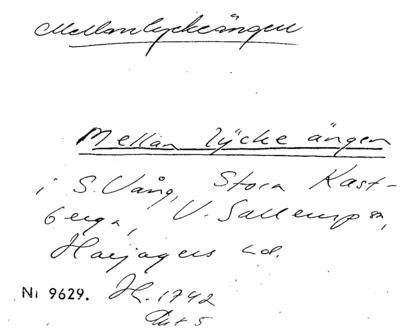 Mellanlyckeängen
Mellan lycke ängen
i S. Vång, Stora Kast-
berga, V. Sallerup sn,
Harjagers hd.
Nr 9629. Ht. 1742
Akt 5